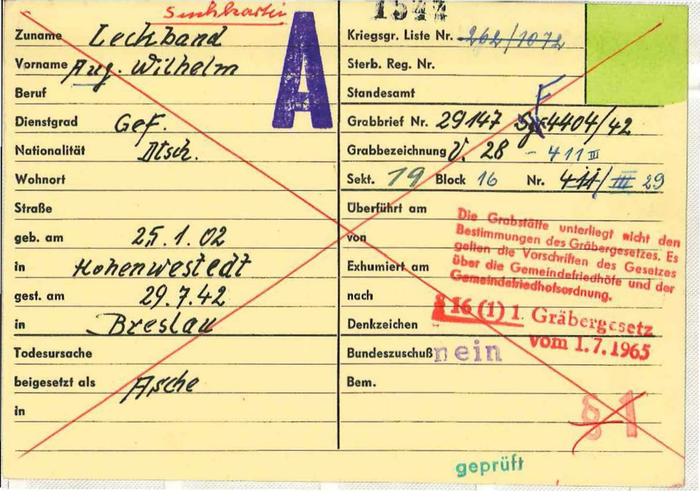 Suchkartei
Zuname Lechband
Vorname Aug. Wilhelm
Beruf
Dienstgrad Gef.
Nationalität Dtsch.
Wohnort
Straße
geb. am 25.1.02
in Hohenwestedt
gest. am 29.7.42
in Breslau
Todesursache
beigesetzt als Asche
in
A
1544
Kriegsgr. Liste Nr. 262/1072
Sterb. Reg. Nr.
Standesamt
Grabbrief Nr. 29147 4404/42
Grabbezeichnung U. 28 - 411 III
Sekt. 19 Block 16 Nr. 411/III 29
Überführt am
von
Exhumiert am
nach
Denkzeichen
Bundeszuschuß nein
Bem.
Die Grabstätte unterliegt nicht den
Bestimmungen des Gräbergesetzes. Es
gelten die Vorschriften des Gesetzes
über die Gemeindefriedhöfe und der
Gemeindefriedhofsordnung.
§ 16 (1) 1. Gräbergesetz
vom 1.7.1965
§ 1
geprüft